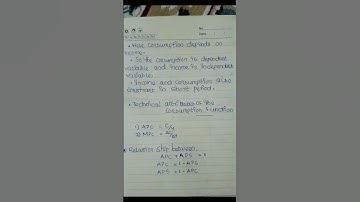 • Here consumption depends on
income.
• So the consumption is dependent
variable and income is independent
variable.
• Income and consumption also
constant in short period.
• Technical attributes of the
consumption function
1) APC = C/Y
2) MPC =
• Relation ship between
APC + APS = 1
APC = 1 - APS
APS = 1 - APC